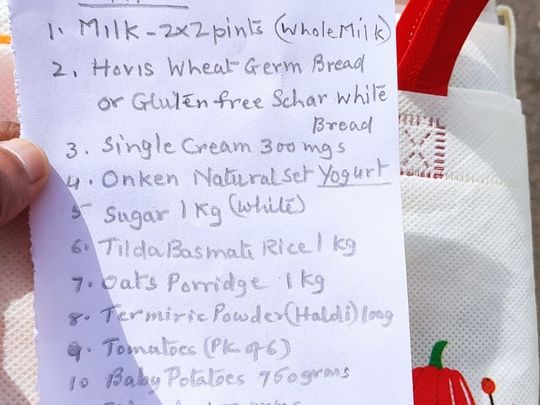 1. Milk - 2x2 pints (Whole Milk)
2. Hovis Wheat Germ Bread
or Gluten free Schar white
Bread
3. Single Cream 300 mgs
4. Onken Natural Set Yogurt
5 Sugar 1 Kg (White)
6. Tilda Basmati Rice 1 kg
7. Oats Porridge 1 kg
8. Termiric Powder (Haldi) 100g
9. Tomatoes (PK of 6)
10 Baby Potatoes 750 grams